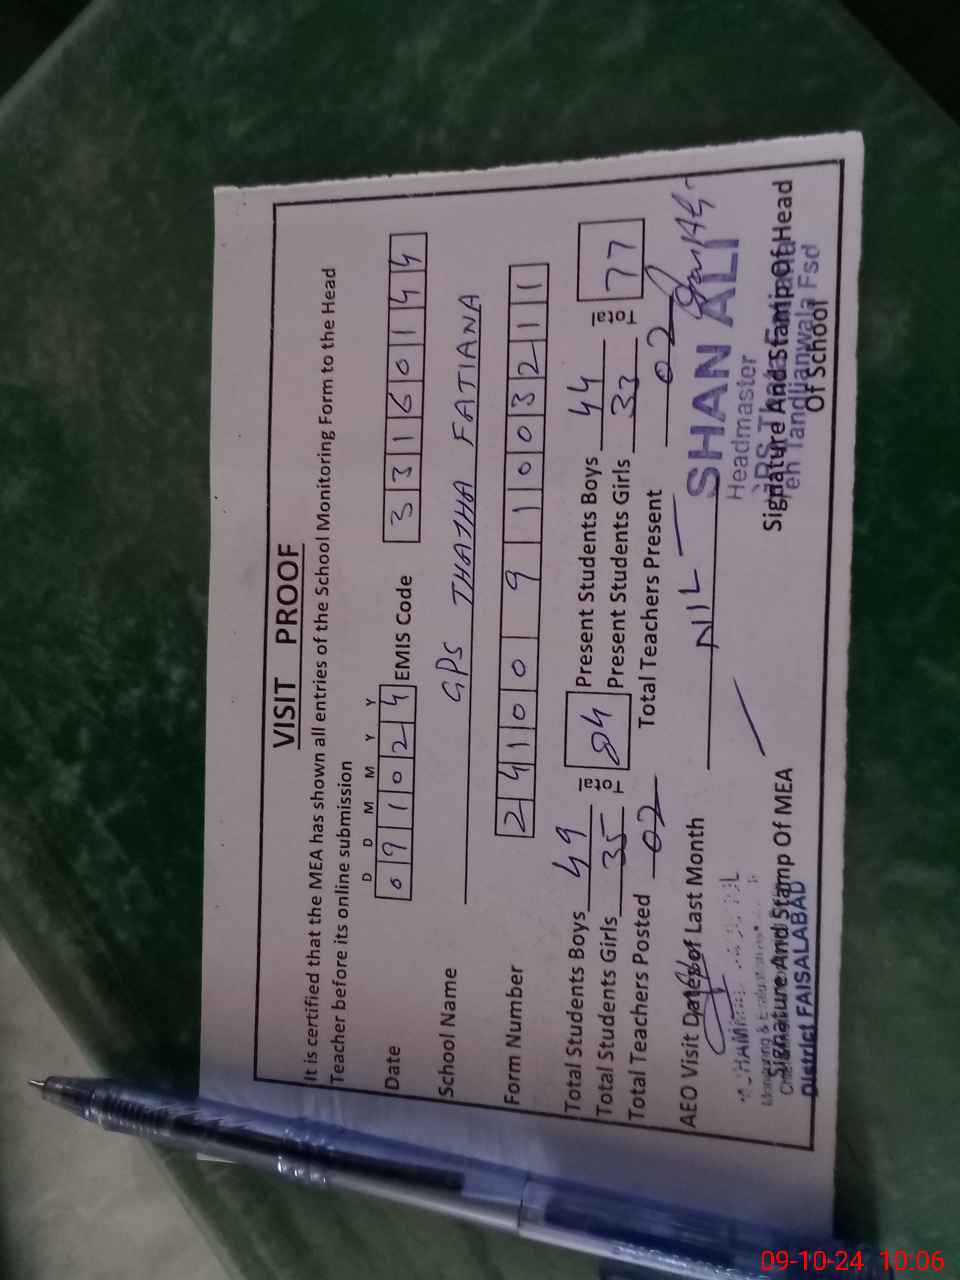 VISIT PROOF
It is certified that the MEA has shown all entries of the School Monitoring Form to the Head
Teacher before its online submission
D D M M Y Y
Date 091024 EMIS Code 33160144
School Name GPS THATHA FATIANA
Form Number 24100 9 1003211
Total Students Boys 49 Total 84 Present Students Boys 44 Total 77
Total Students Girls 35 Present Students Girls 33
Total Teachers Posted 02 Total Teachers Present 02
AEO Visit Dates of Last Month NIL
SHAN ALI
Headmaster
Teh Tandlianwala Fsd
Monitoring & Evaluation
Signature And Stamp Of MEA Signature And Stamp Of Head
Of School
District FAISALABAD
09-10-24 10:06